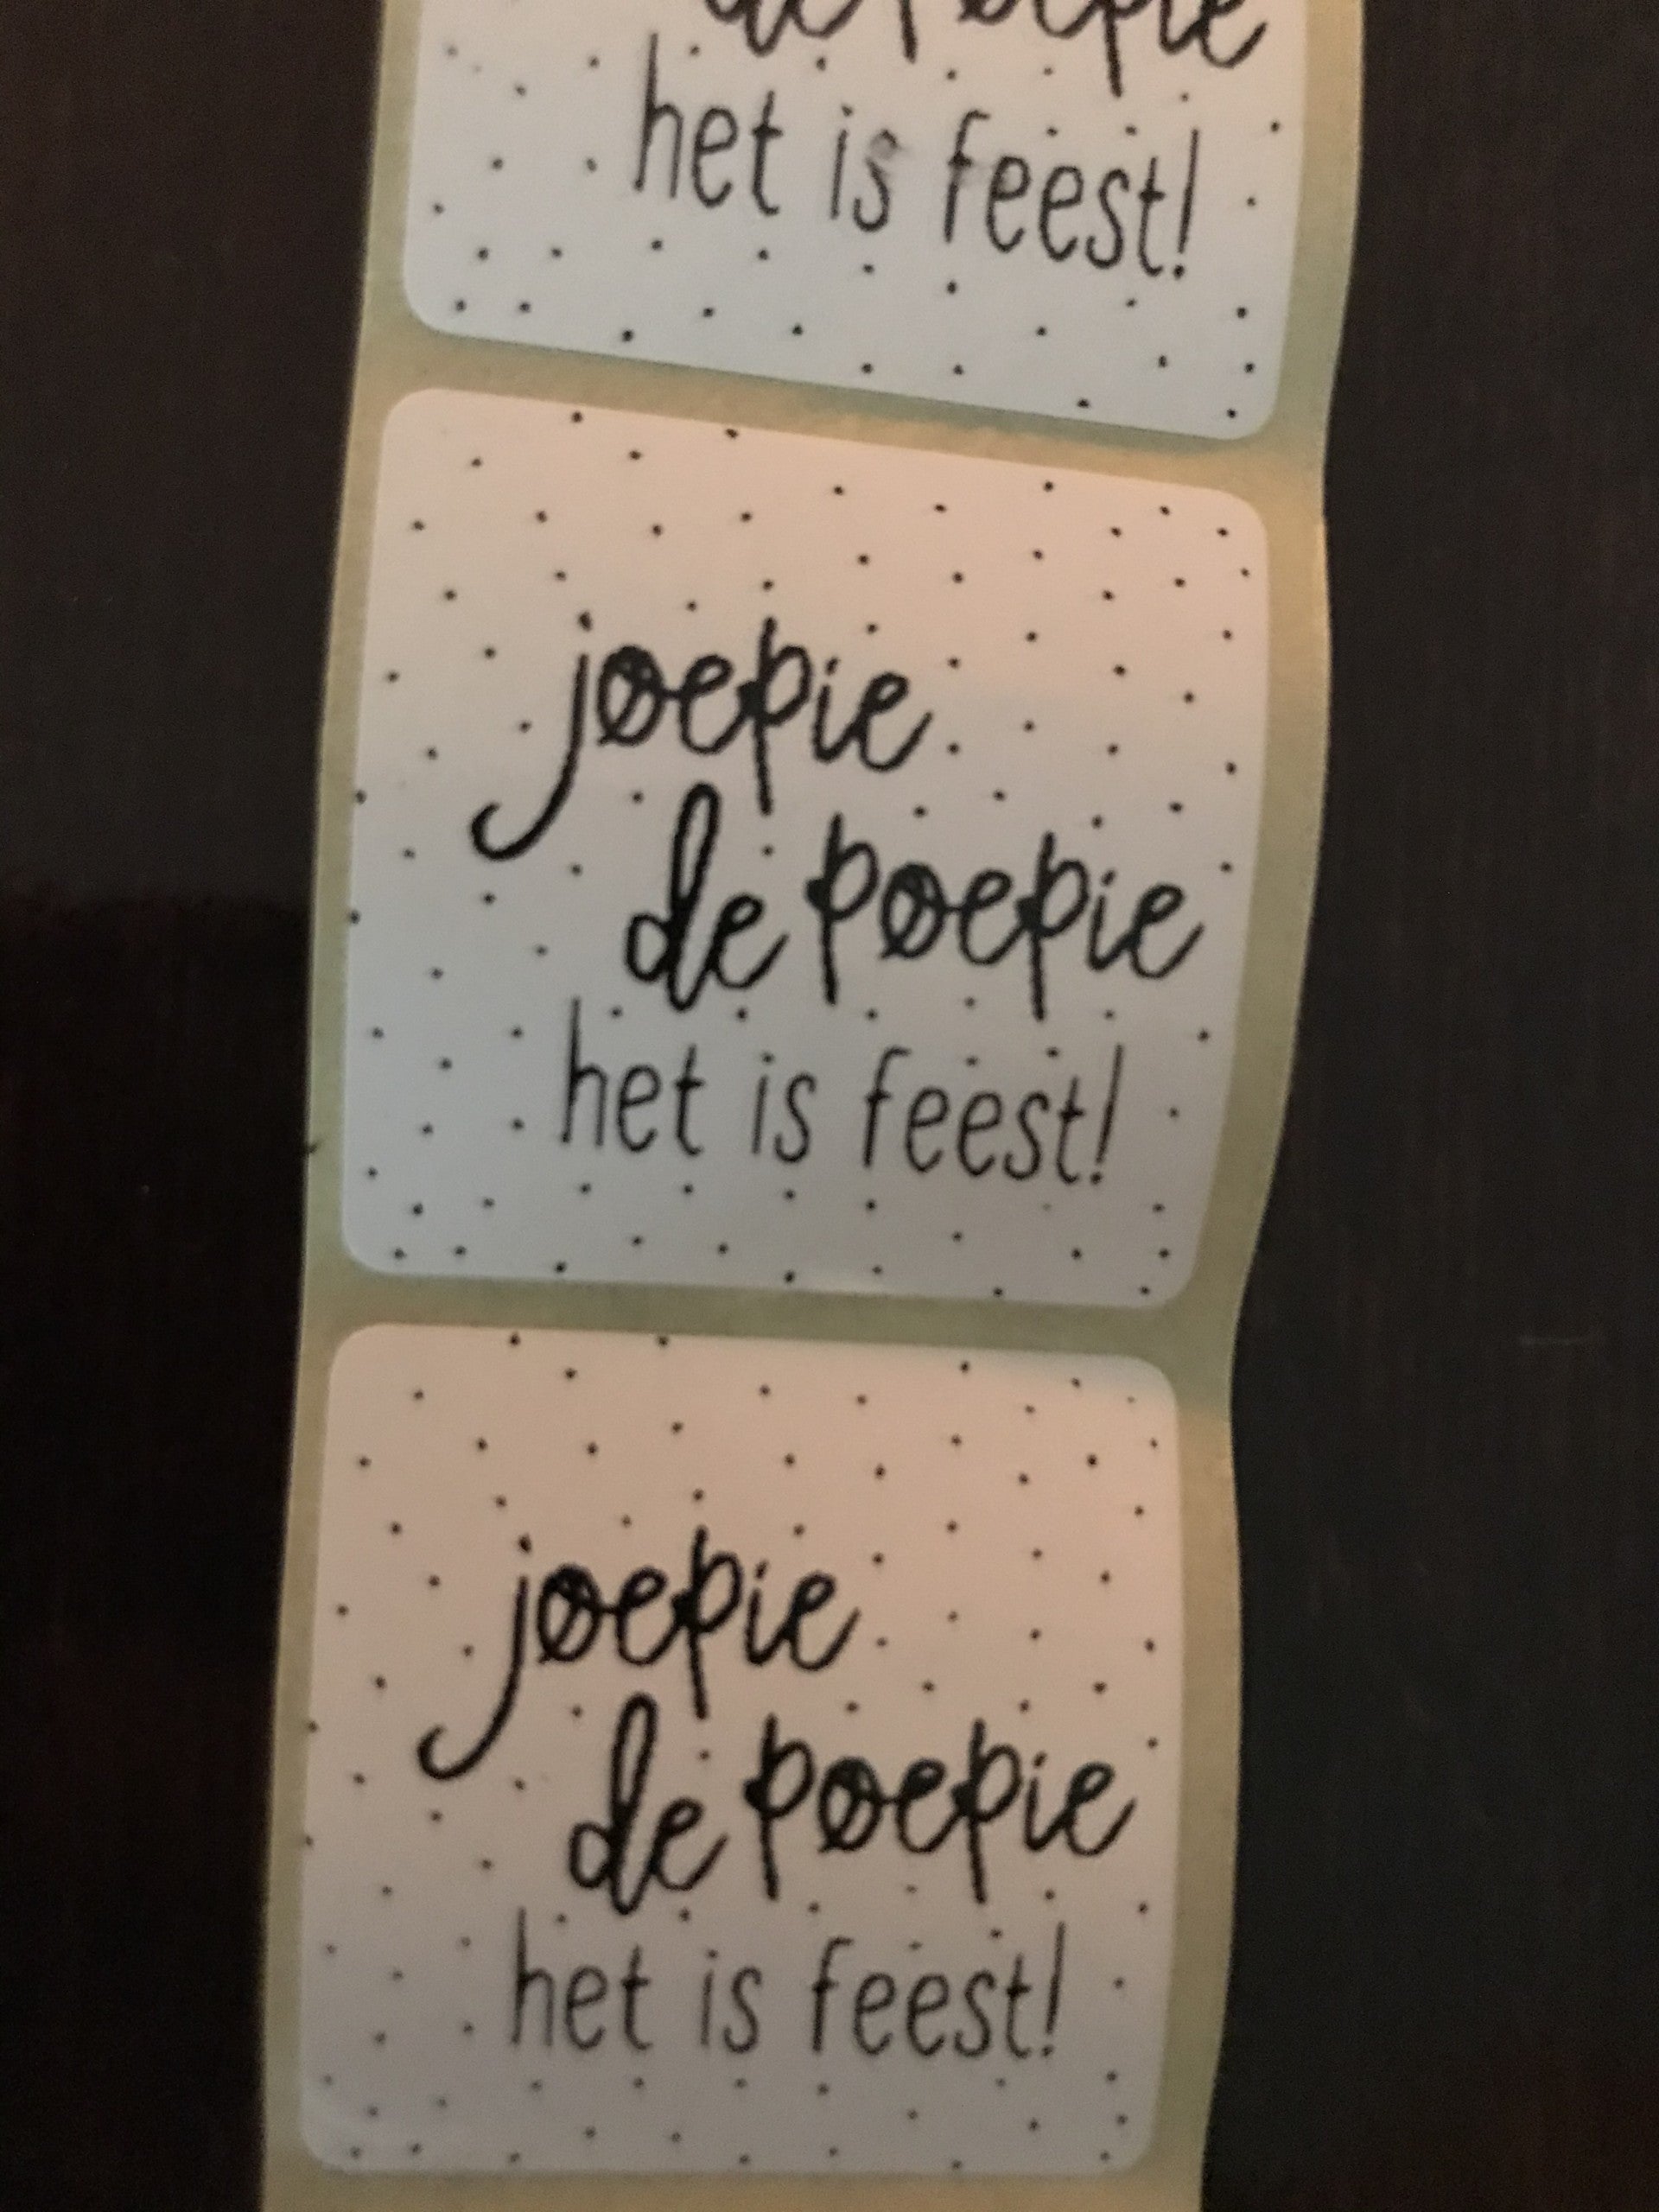 de poepie
het is feest!
joepie
de poepie
het is feest!
joepie
de poepie
het is feest!